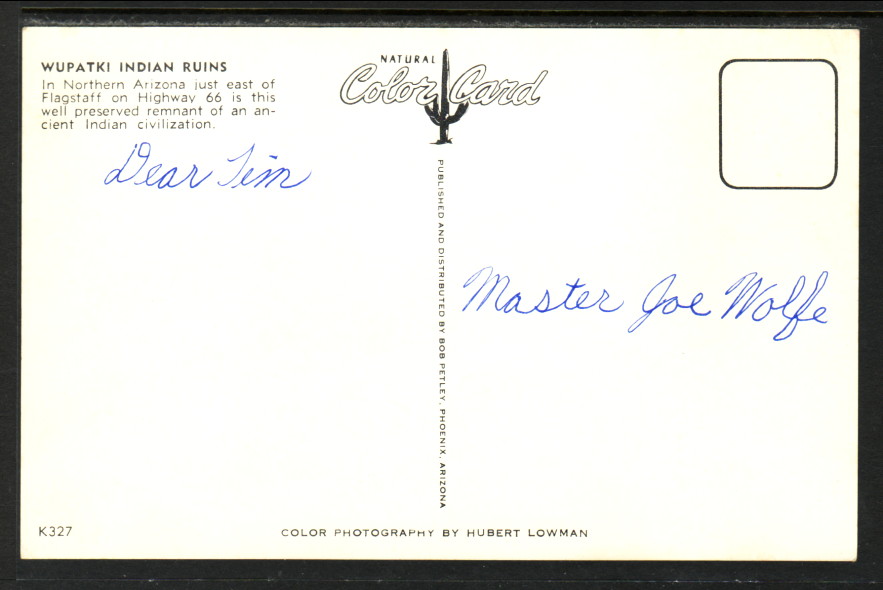 WUPATKI INDIAN RUINS
In Northern Arizona just east of
Flagstaff on Highway 66 is this
well preserved remnant of an an-
cient Indian civilization.
Dear Tim
NATURAL
Color Card
PUBLISHED AND DISTRIBUTED BY BOB PETLEY, PHOENIX, ARIZONA
Master Joe Wolfe
K327
COLOR PHOTOGRAPHY BY HUBERT LOWMAN